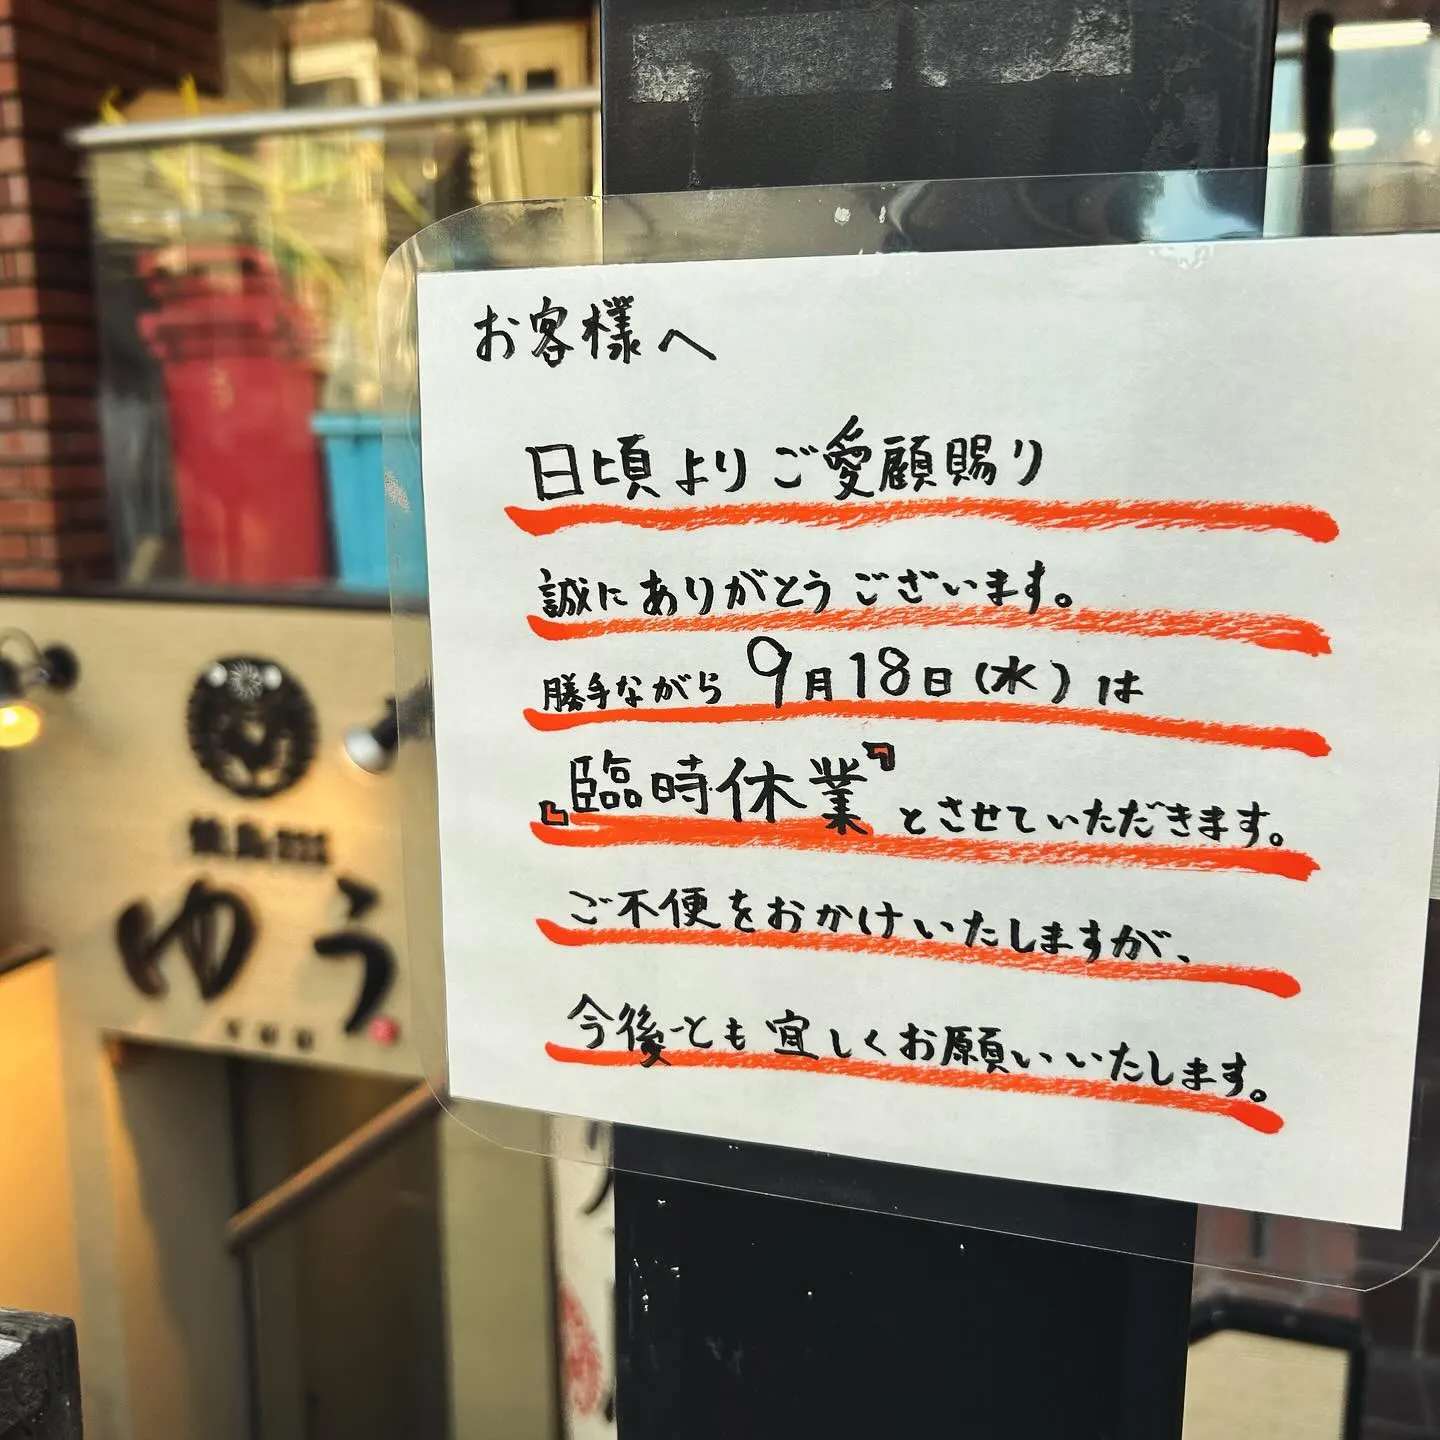 お客様へ
日頃よりご愛顧賜り
誠にありがとうございます。
勝手ながら 9月18日(水)は
『臨時休業』とさせていただきます。
ご不便をおかけいたしますが、
今後とも宜しくお願いいたします。
ゆう